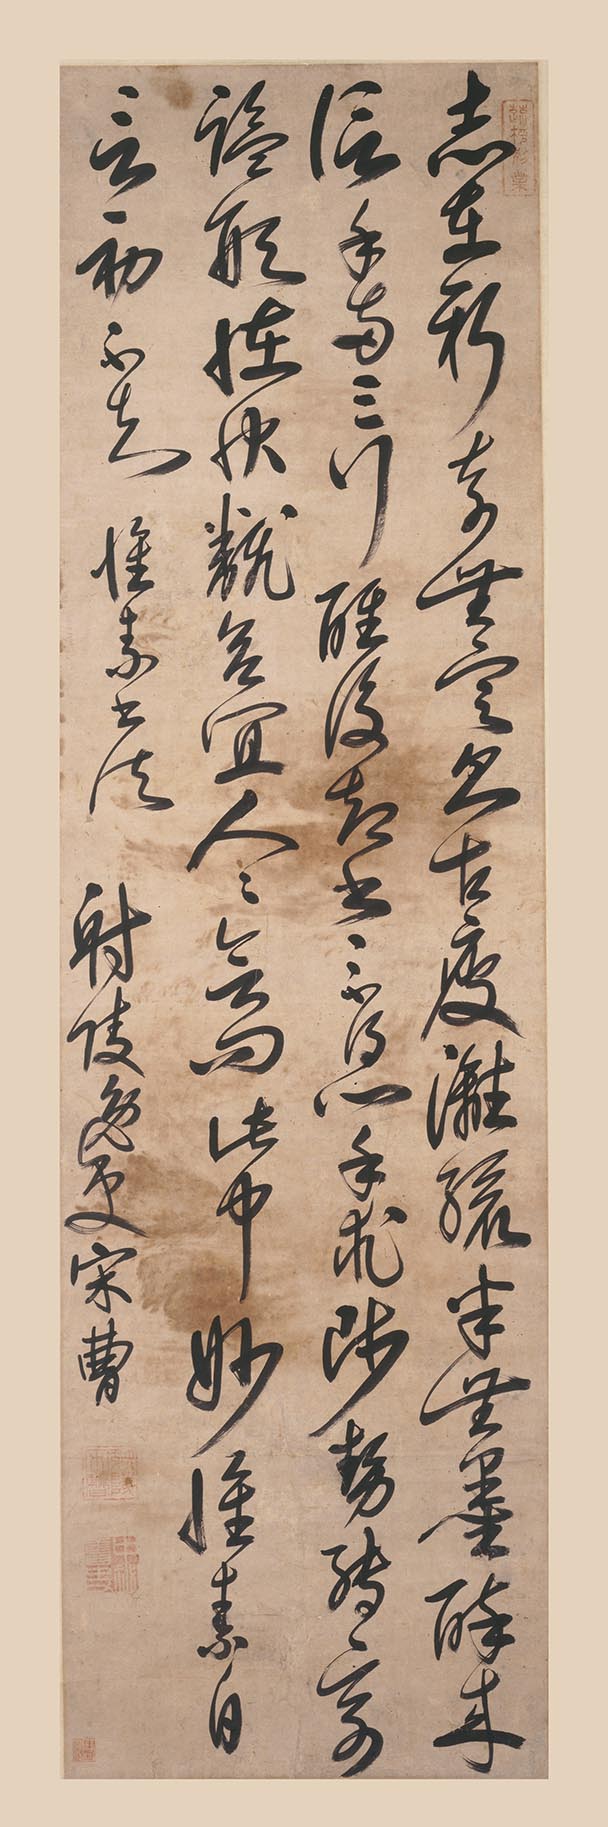 志在新奇無定則古瘦灕纚半無墨醉來
信手兩三行醒後却書〻不得心手相師勢轉奇
詭形怪狀翻合宜人〻欲問此中妙懷素自
言初不知 懷素書法 射陵逸史宋曹